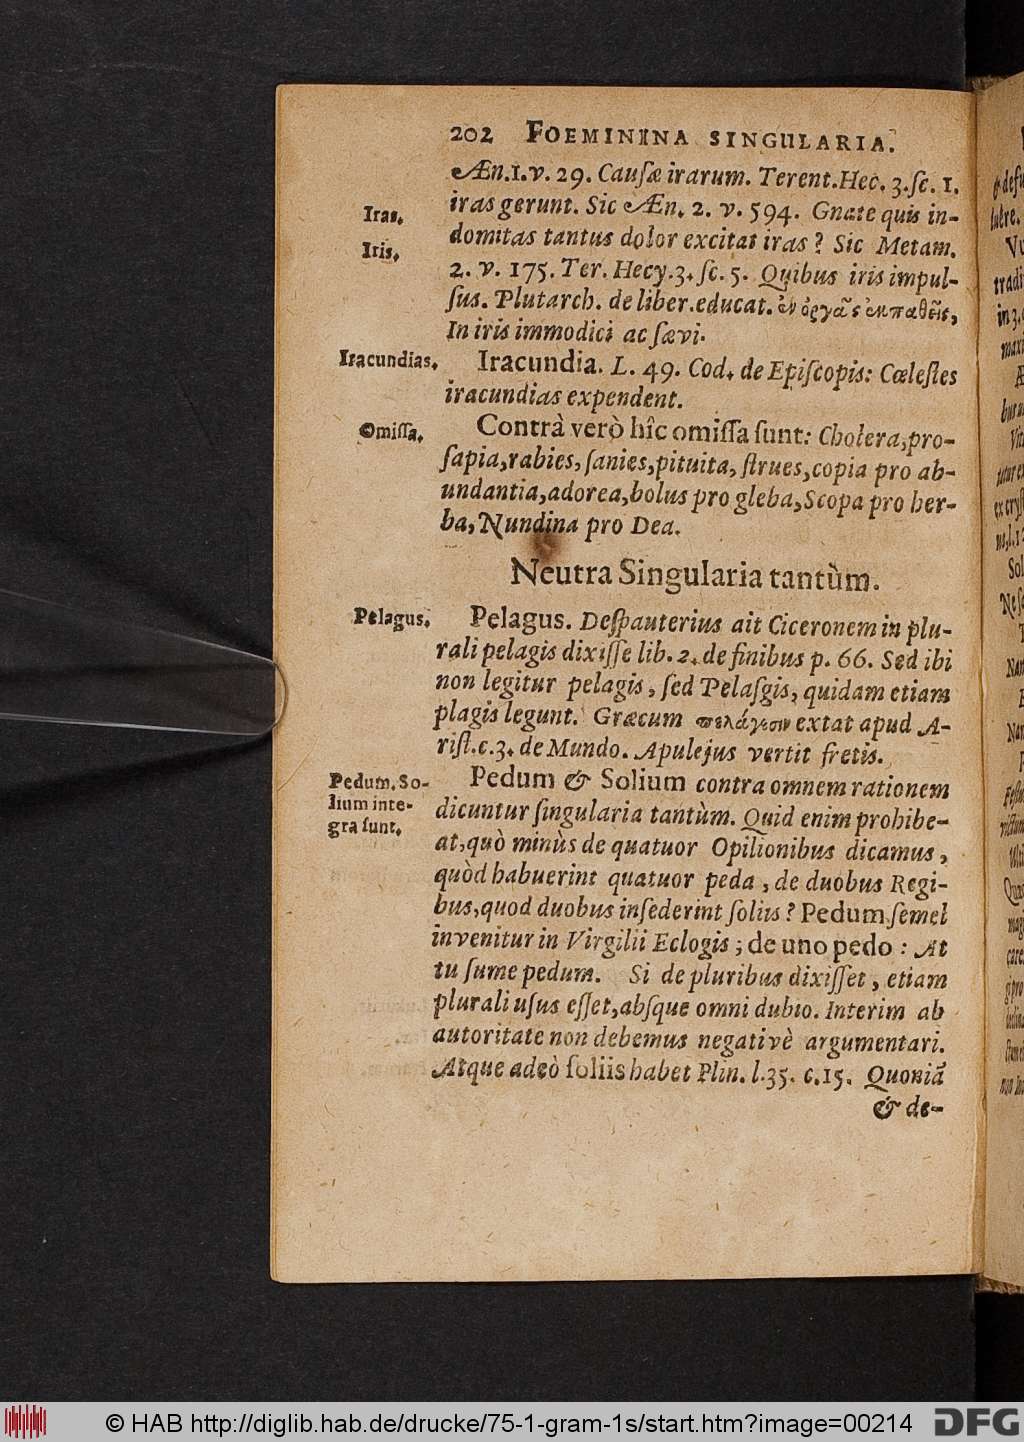 202 FOEMININA SINGULARIA.
Æn.1.v. 29. Cauſæ irarum. Terent.Hec. 3.ſc. 1.
Iras. iras gerunt. Sic Æn. 2. v. 594. Gnate quis in-
Iris. domitas tantus dolor excitat iras? Sic Metam.
2. v. 175. Ter. Hecy.3. ſc. 5. Quibus iris impul-
ſus. Plutarch. de liber.educat. ἐν ὀργαῖς ἐκπαθεῖς,
In iris immodici ac ſævi.
Iracundias. Iracundia. L. 49. Cod. de Epiſcopis: Cœleſtes
iracundias expendent.
Omiſſa. Contrà verò hîc omiſſa ſunt: Cholera,pro-
ſapia,rabies, ſanies,pituita, ſtrues,copia pro ab-
undantia,adorea,bolus pro gleba,Scopa pro her-
ba, Nundina pro Dea.
Neutra Singularia tantùm.
Pelagus. Pelagus. Deſpauterius ait Ciceronem in plu-
rali pelagis dixiſſe lib. 2. de finibus p. 66. Sed ibi
non legitur pelagis, ſed Pelaſgis, quidam etiam
plagis legunt. Græcum πελάγεσιν extat apud A-
riſt.c.3. de Mundo. Apulejus vertit fretis.
Pedum. So- Pedum & Solium contra omnem rationem
lium inte- dicuntur ſingularia tantùm. Quid enim prohibe-
gra ſunt. at,quò minùs de quatuor Opilionibus dicamus,
quòd habuerint quatuor peda, de duobus Regi-
bus,quod duobus inſederint ſoliis? Pedum ſemel
invenitur in Virgilii Eclogis; de uno pedo: At
tu ſume pedum. Si de pluribus dixiſſet, etiam
plurali uſus eſſet,abſque omni dubio. Interim ab
autoritate non debemus negativè argumentari.
Atque adeò ſoliis habet Plin. l.35. c.15. Quoniã
& de-
© HAB http://diglib.hab.de/drucke/75-1-gram-1s/start.htm?image=00214
DFG